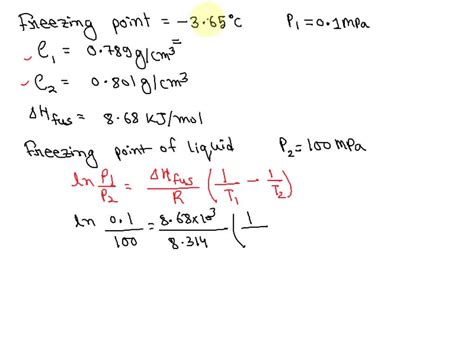 Freezing point = -3.65°C P₁ = 0.1 mPa
ρ₁ = 0.789 g/cm³
ρ₂ = 0.801 g/cm³
ΔHfus = 8.68 KJ/mol
Freezing point of liquid P₂ = 100 mPa
ln P₁/P₂ = ΔHfus/R (1/T₁ - 1/T₂)
ln 0.1/100 = 8.68×10³/8.314 (1/